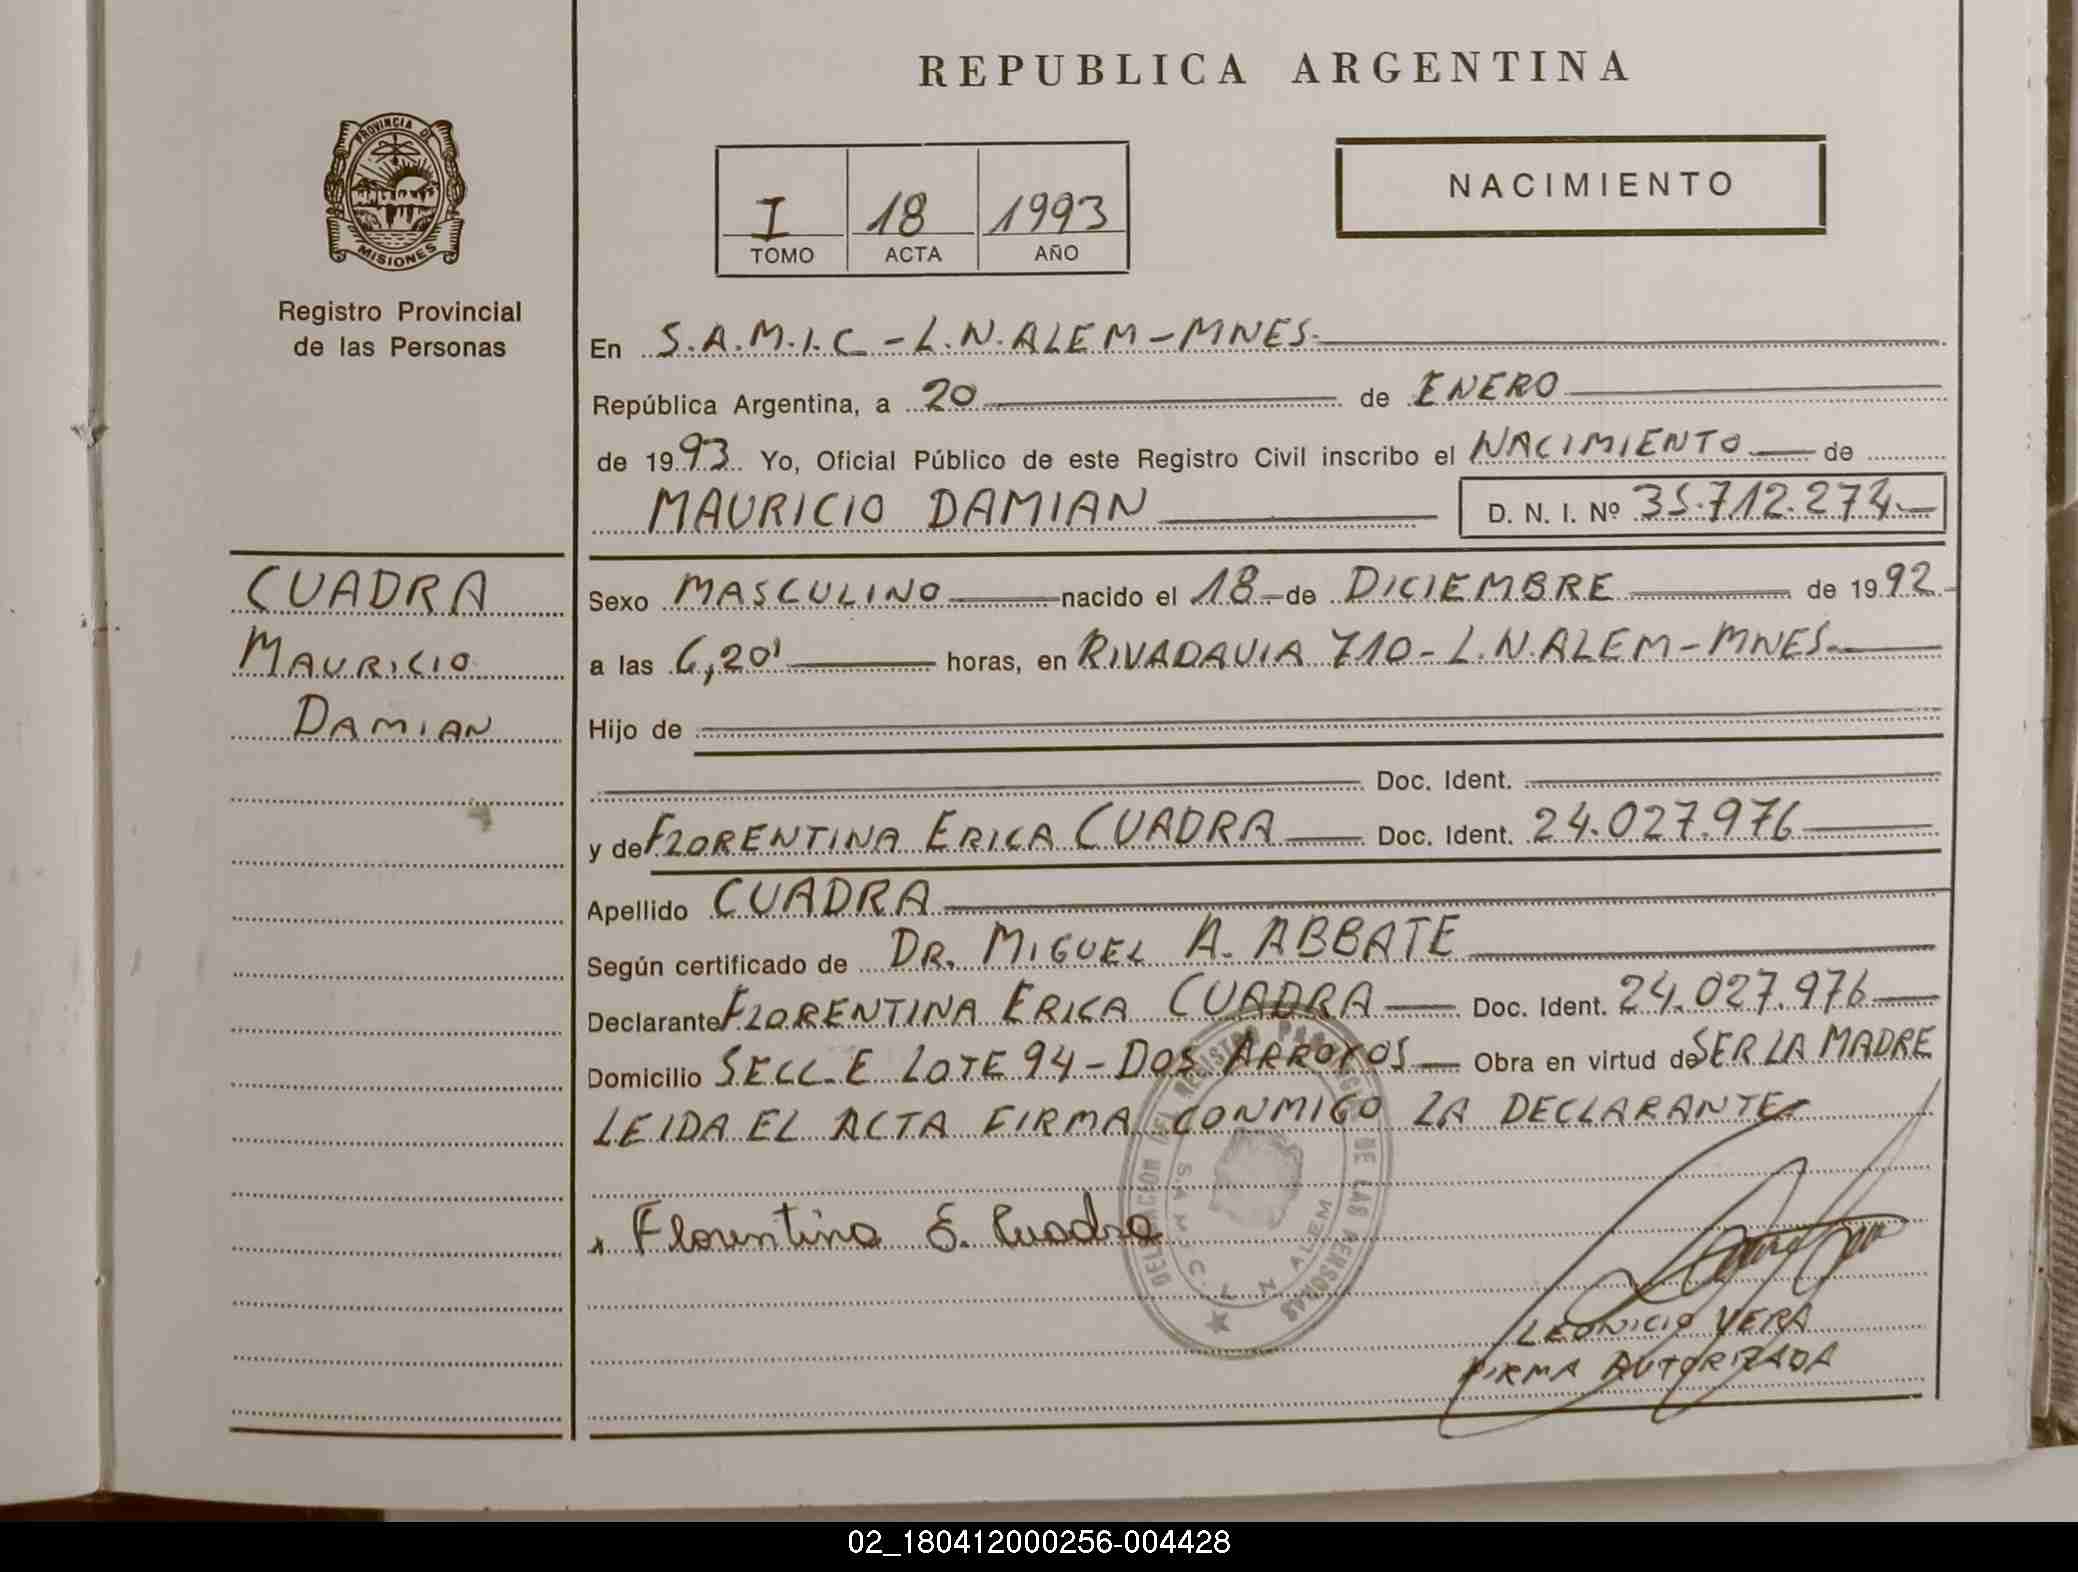 REPUBLICA ARGENTINA
PROVINCIA DE
MISIONES
Registro Provincial
de las Personas
I 18 1993
TOMO ACTA AÑO
NACIMIENTO
En S.A.M.I.C - L.N. ALEM - MNES.
República Argentina, a 20 de ENERO
de 1993 Yo, Oficial Público de este Registro Civil inscribo el NACIMIENTO de
MAURICIO DAMIAN D. N. I. Nº 35.712.274
CUADRA
MAURICIO
DAMIAN
Sexo MASCULINO nacido el 18 de DICIEMBRE de 1992
a las 6,20' horas, en RIVADAVIA 710 - L.N. ALEM - MNES.
Hijo de
Doc. Ident.
y de FLORENTINA ERICA CUADRA Doc. Ident. 24.027.976
Apellido CUADRA
Según certificado de DR. MIGUEL A. ABBATE
Declarante FLORENTINA ERICA CUADRA Doc. Ident. 24.027.976
Domicilio SECC. E LOTE 94 - DOS ARROYOS Obra en virtud de SER LA MADRE
LEIDA EL ACTA FIRMA CONMIGO LA DECLARANTE
Florentina E. Cuadra
DELEGACION DEL REGISTRO PROVINCIAL DE LAS PERSONAS
S.A.M.I.C. L N ALEM
LEONICIO VERA
FIRMA AUTORIZADA
02_180412000256-004428